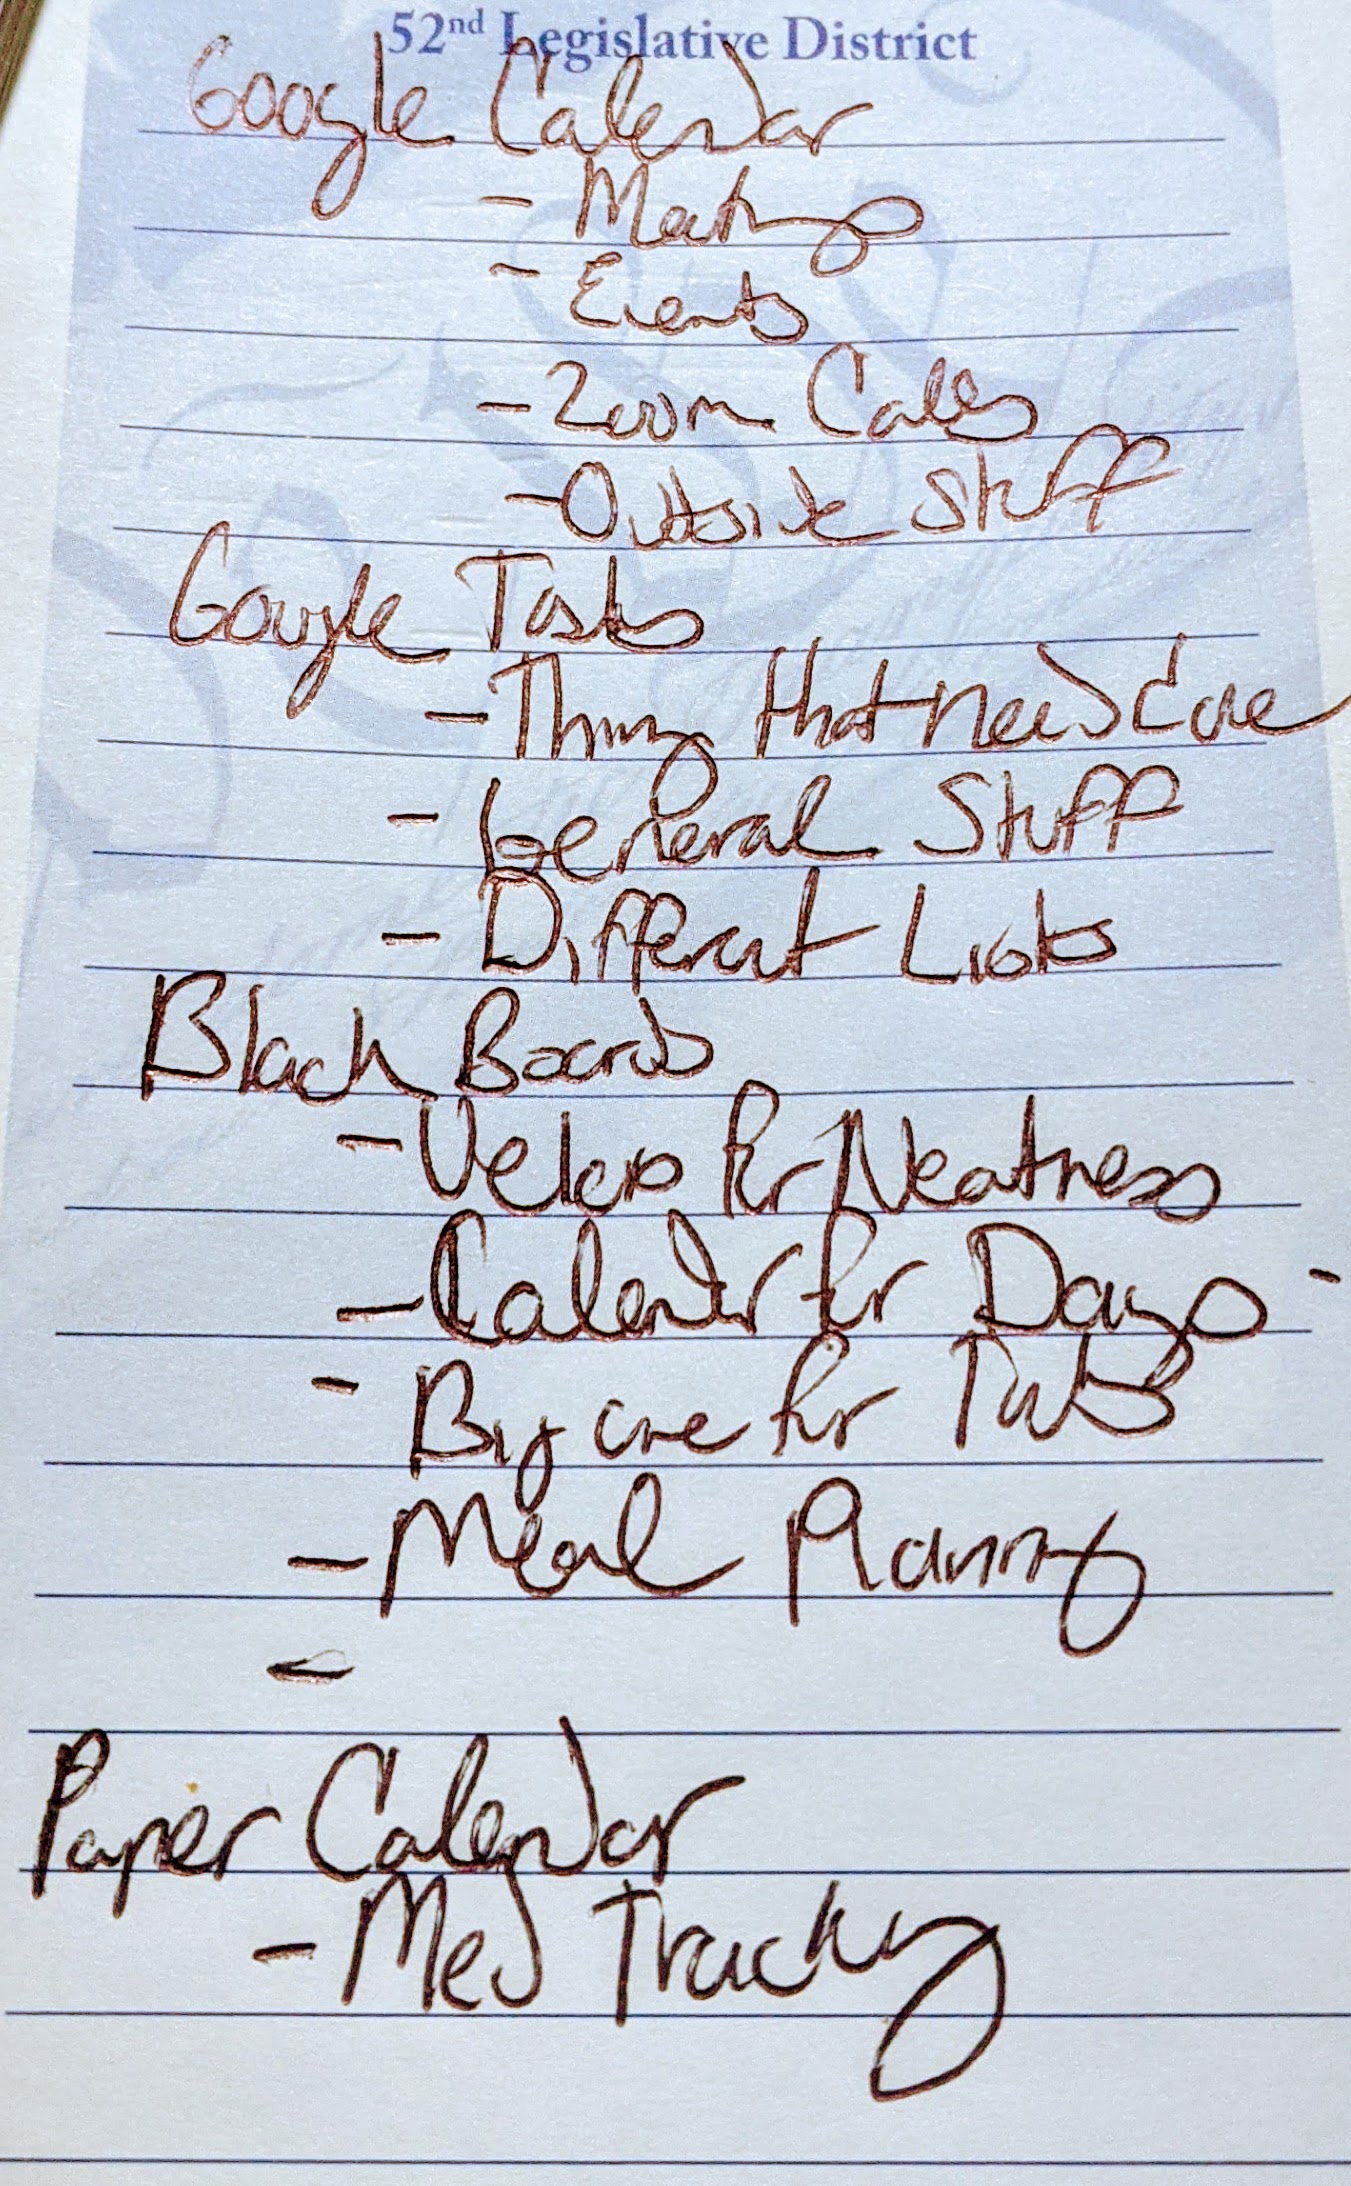 52nd Legislative District
Google Calendar
- Meetings
- Events
- Zoom Calls
- Outside Stuff
Google Tasks
- Things that need done
- General Stuff
- Different Lists
Black Boards
- Velcro for Neatness
- Calendar for Days -
- Big one for Tasks
- Meal Planning
-
Paper Calendar
- Med Tracking